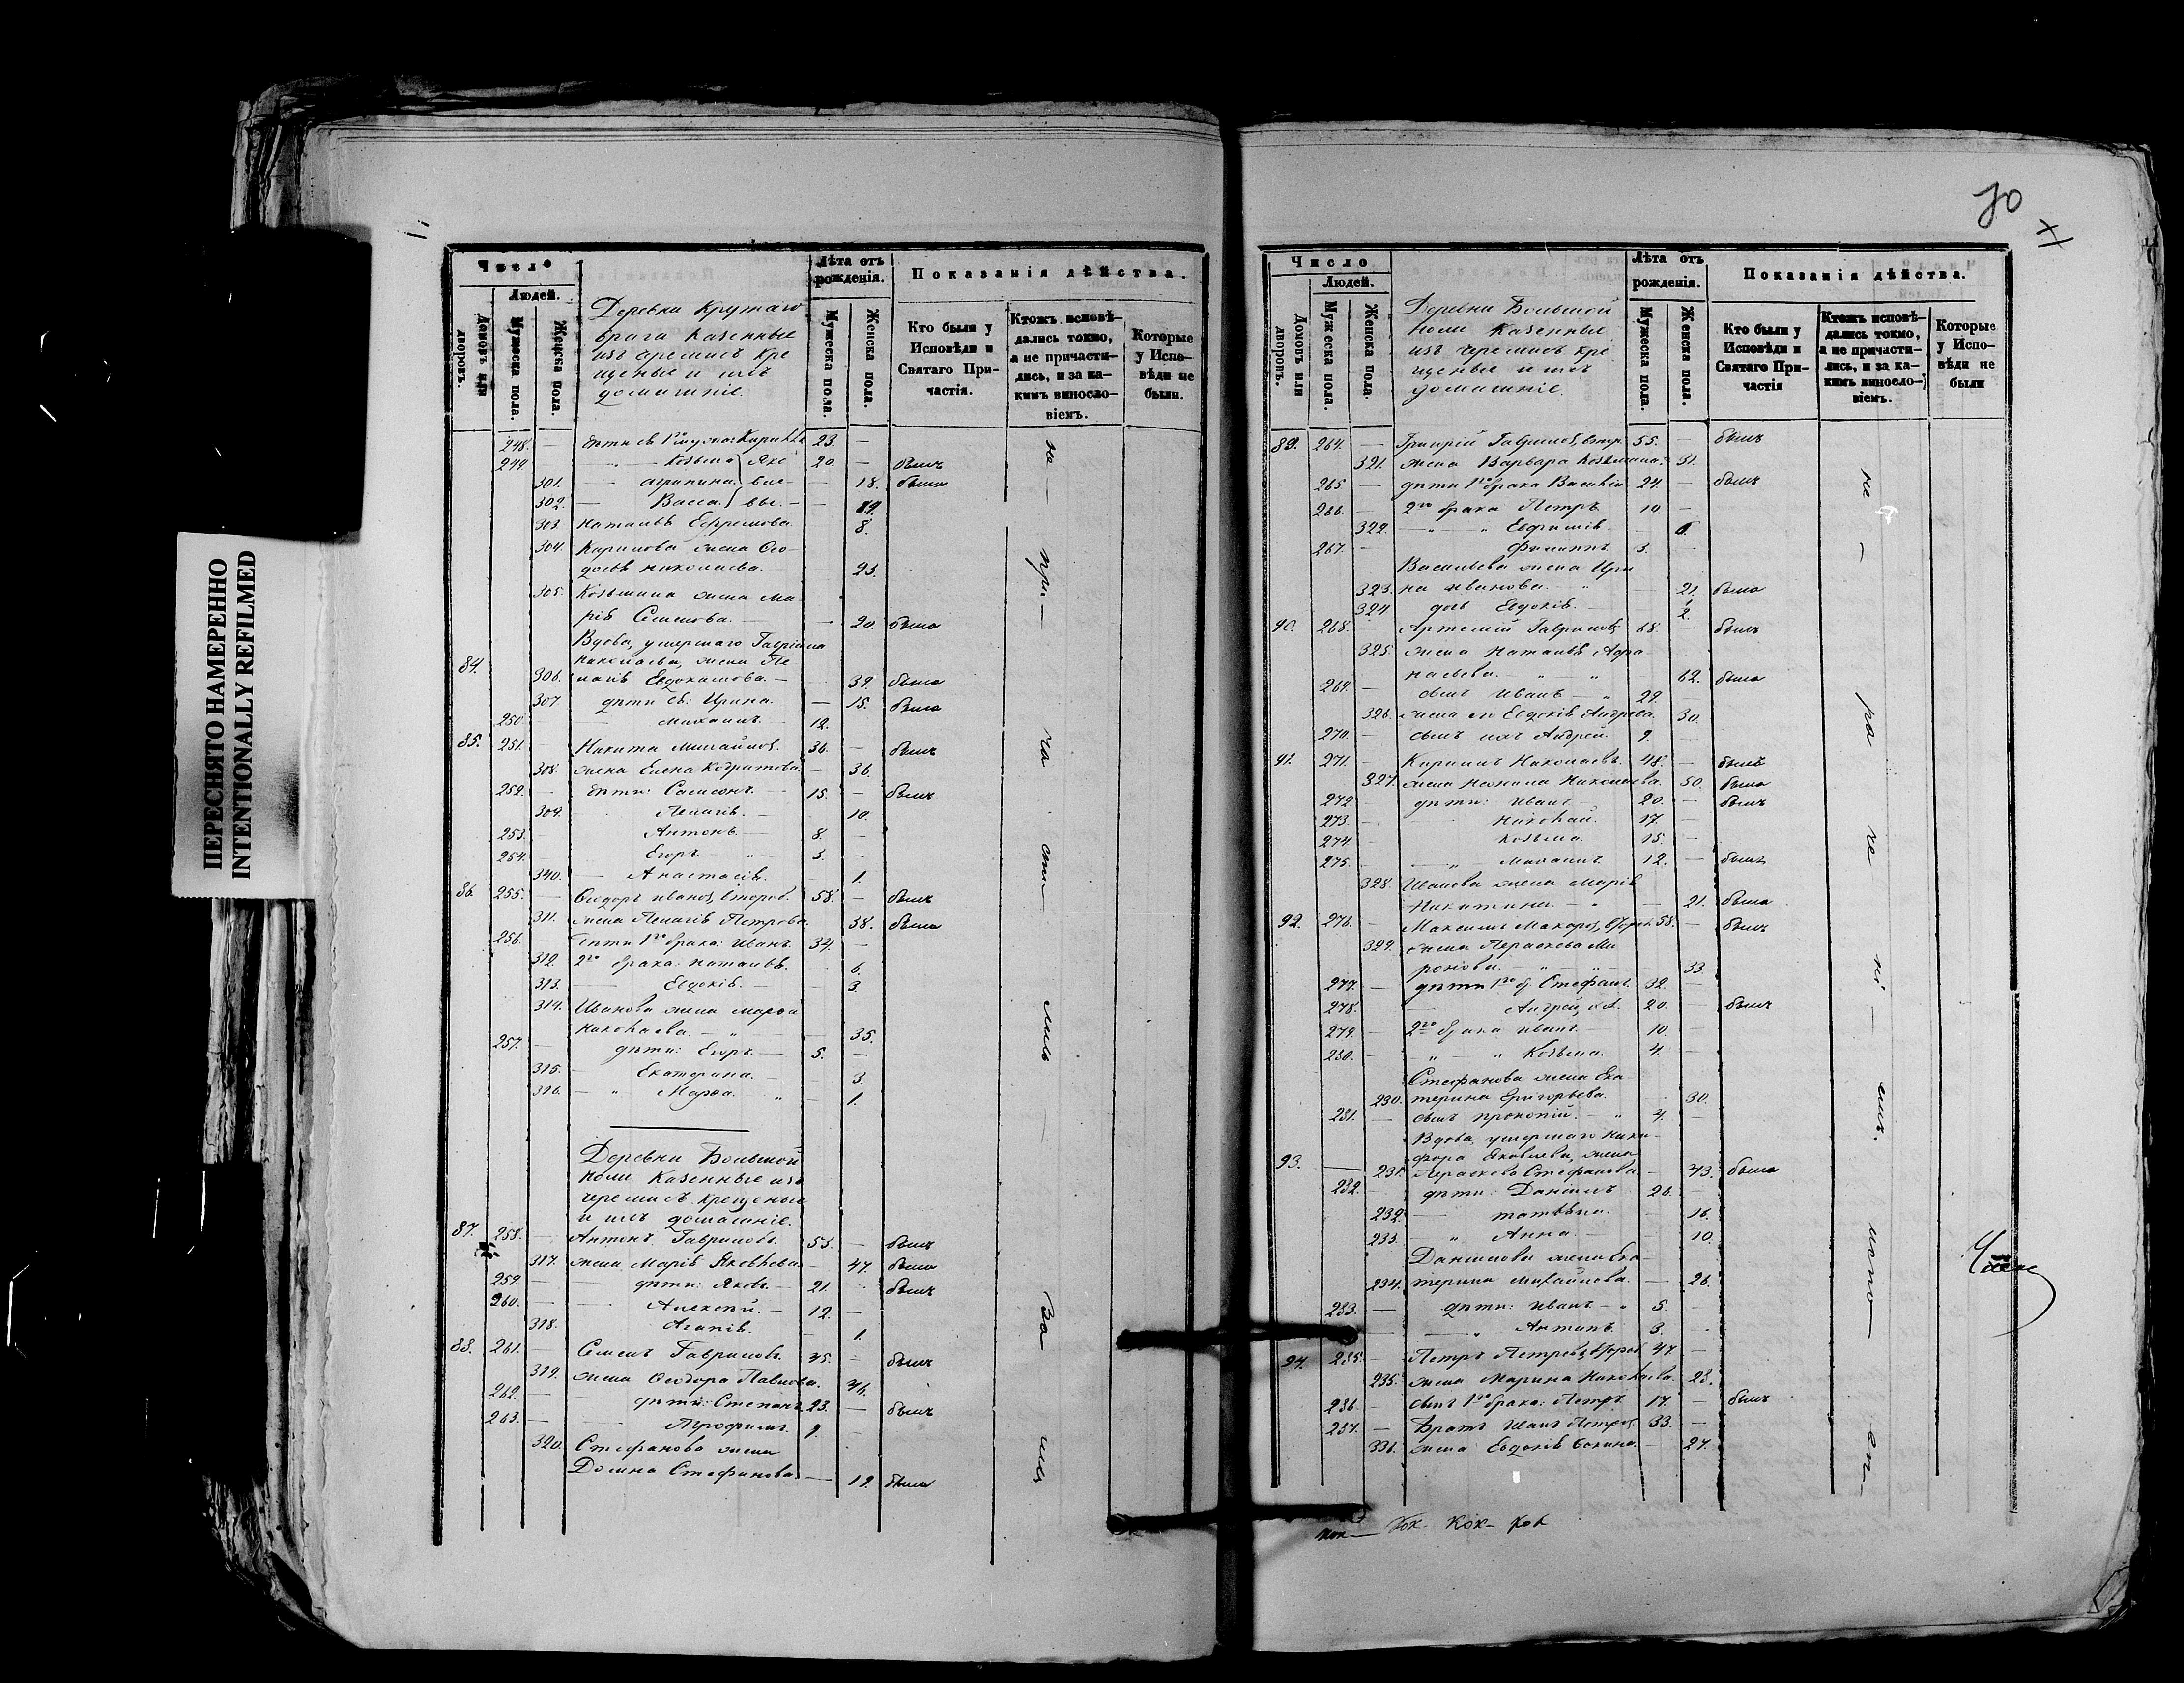 ПЕРЕСНЯТО НАМЕРЕННО
INTENTIONALLY REFILMED
Число
Людей.
Домовъ или дворовъ.
Мужеска пола.
Женска пола.
Деревни Крутаго
врага казенные
изъ черемисъ кре
щеные и ихъ
домашніе.
Лѣта отъ рожденія.
Мужеска пола.
Женска пола.
Показанія дѣйства.
Кто были у Исповѣди и Святаго Причастія.
Ктожъ исповѣдались токмо, а не причастились, и за какимъ винословіемъ.
Которые у Исповѣди не были.
248. — 23. —
249. — Козьма 20. — былъ
301. — Агрипина — 18. была
302. — Васса —
303. Наталья Ефремова. 8.
304. Кирилова жена Ѳео-
досья Николаева. — 23.
305. Козьмина жена Ма-
рія Семенова. — 20. была
Вдова, умершаго Гаврила
84. Николаева, жена Пе
306. лагія Евдокимова. — 39. была
307. дѣти ея: Ирина. — 15. была
250 — Михаилъ 12.
85. 251. — Никита Михайловъ. 36. — былъ
308. жена Елена Кодратова. — 36.
252. — дѣти: Самсонъ. — 15. — былъ
309. Пелагія. — 10.
253. — Антонъ. — 8. —
254. — Егоръ — 3. —
340. — Анастасія. 1.
86. 255. — Ѳеодоръ Ивановъ, 58. — былъ
311. жена Пелагія Петрова. 38. была
256. — дѣти 1го брака: Иванъ. 34. —
312. 2го брака: Наталья. 6.
313. — Евдокія. — 3.
314. Иванова жена Марѳа
Николаева. — 35.
257. — дѣти: Егоръ — 5. —
315. — Екатерина. — 3.
316. — " — Марѳа. " — 1.
Деревни Большой
Ноли казенные изъ
черемисъ, крещеные
и ихъ домашніе.
87. 258. — Антонъ Гавриловъ. 55. — былъ
317. жена Марія Яковлева. — 47. была
259. — дѣти: Яковъ. — 21. былъ
260. — Алексѣй. — 12.
318. Агапія. — 1.
88. 261. — Семенъ Гавриловъ. 45. — былъ
319. жена Ѳеодора Павлова. 46.
262. — дѣти: Степанъ 23. — былъ
263. — 9. —
320. Стефанова жена
Домна Стефанова. — 19. была
не — при — ча сти — лись — за
70
Число
Людей.
Домовъ или дворовъ.
Мужеска пола.
Женска пола.
Деревни Большой
Ноли казенные
изъ черемисъ кре
щеные и ихъ
домашніе.
Лѣта отъ рожденія.
Мужеска пола.
Женска пола.
Показанія дѣйства.
Кто были у Исповѣди и Святаго Причастія
Ктожъ исповѣдались токмо, а не причастились, и за какимъ винословіемъ.
Которые у Исповѣди не были
89. 264. — Григорій Гавриловъ, 55. — былъ
321. жена Варвара Козьмина. 31.
265. — дѣти 1го брака Василій 24. — былъ
266. — 2го брака Петръ 10. —
322. — " " Евфимія —
267. — Филиппъ 3.
Васильева жена Ири
323. на Иванова. " — 21. была
324 дочь Евдокія. — 2.
90. 268. Артемій Гавриловъ 68. — былъ
325. жена Наталья Афа
насьева. " " 62. была
269. — сынъ Иванъ — " 29.
326. жена его Евдокія Андреева. 30.
270. — сынъ ихъ Андрей. 9.
91. 271. — Кирилъ Николаевъ. 48. — былъ
327. жена Неонила Николаева. 50. была
272 — дѣти: Иванъ — 20. — былъ
273. Николай. 17. —
274. Козьма. 15. —
275. — " — Михаилъ 12. — былъ
328. Иванова жена Марія
Никитина — " — 21. была
92. 276. — Максимъ Макаровъ, 58. — былъ
329. жена Параскева Ми
ронова. " — " — 33.
277. — дѣти 1го б. Стефанъ. 32. —
278. — Андрей 20. — былъ
279. — 2го брака Иванъ — 10. —
230. — " — " Козьма. 4. —
Стефанова жена Ека-
230. терина Григорьева. 30.
231. — сынъ Прокопій. — " 4. —
Вдова, умершаго Ники-
фора Яковлева, жена
93. — 231. Параскева Стефанова — 43. была
232. — дѣти: Даніилъ 26. —
232. — 16.
233. — " Анна. — 10.
Данилова жена Ека-
234. терина Михайлова. — 26.
233. — дѣти: Иванъ — " 5. —
— " Антипъ. 3. —
94. 235. — Петръ Петровъ, 47. —
235. жена Марина Николаева. 23.
236. — сынъ 1го брака: Петръ. 17. — былъ
237. — Братъ Иванъ Петровъ 33. —
336. жена Евдокія — 27.
не — ра че ні — емъ.